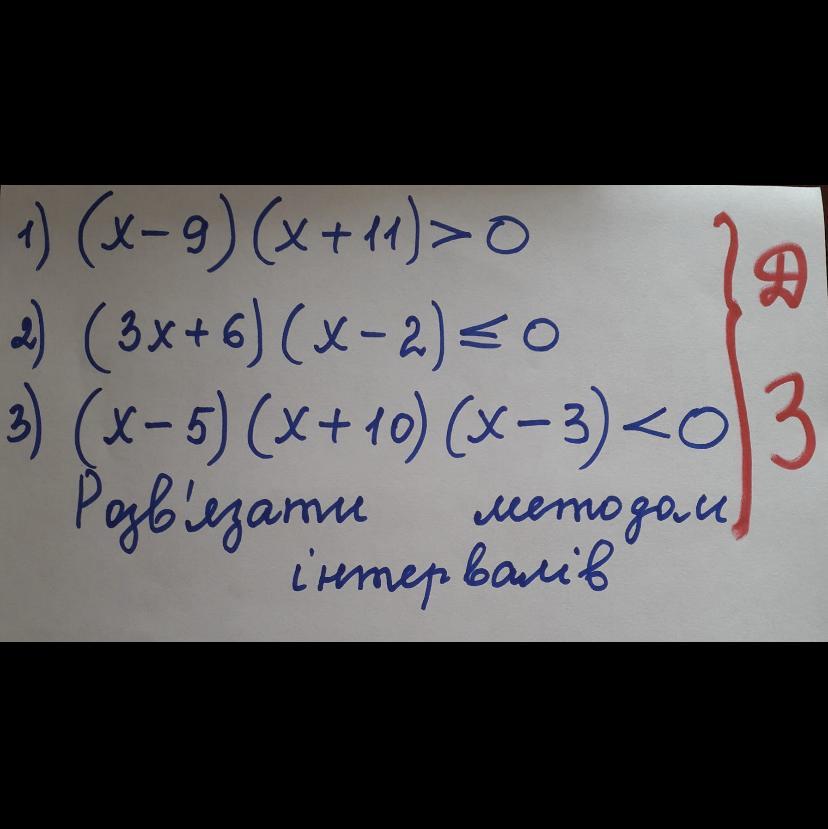 1) (x-9)(x+11)>0
2) (3x+6)(x-2)≤0
3) (x-5)(x+10)(x-3)<0
Розв'язати методом
інтервалів
Д
З